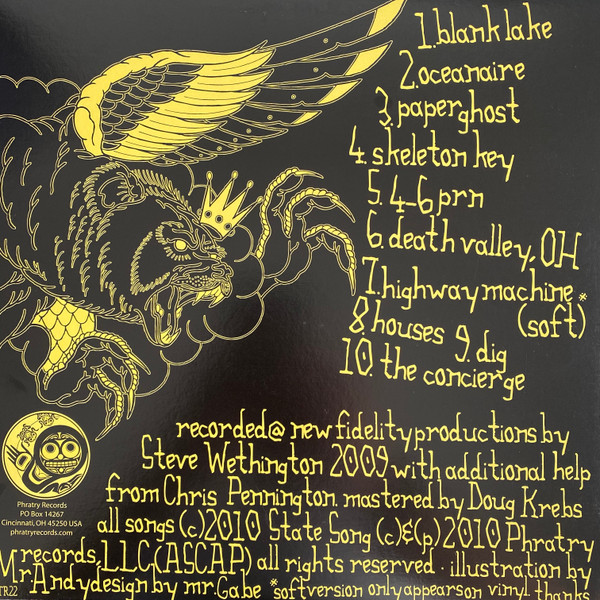 1. blank lake
2. oceanaire
3. paperghost
4. skeleton key
5. 4-6 prn
6. death valley, OH
7. highway machine *
(soft)
8. houses 9. dig
10. the concierge
recorded@ new fidelity productions by
Steve Wethington 2009 with additional help
from Chris Pennington. mastered by Doug Krebs
all songs (c)2010 State Song (c)&(p) 2010 Phratry
records, LLC(ASCAP) all rights reserved · illustration by
Mr. Andy design by mr. Gabe *soft version only appears on vinyl thanks
Phratry Records
PO Box 14267
Cincinnati, OH 45250 USA
phratryrecords.com
TR22